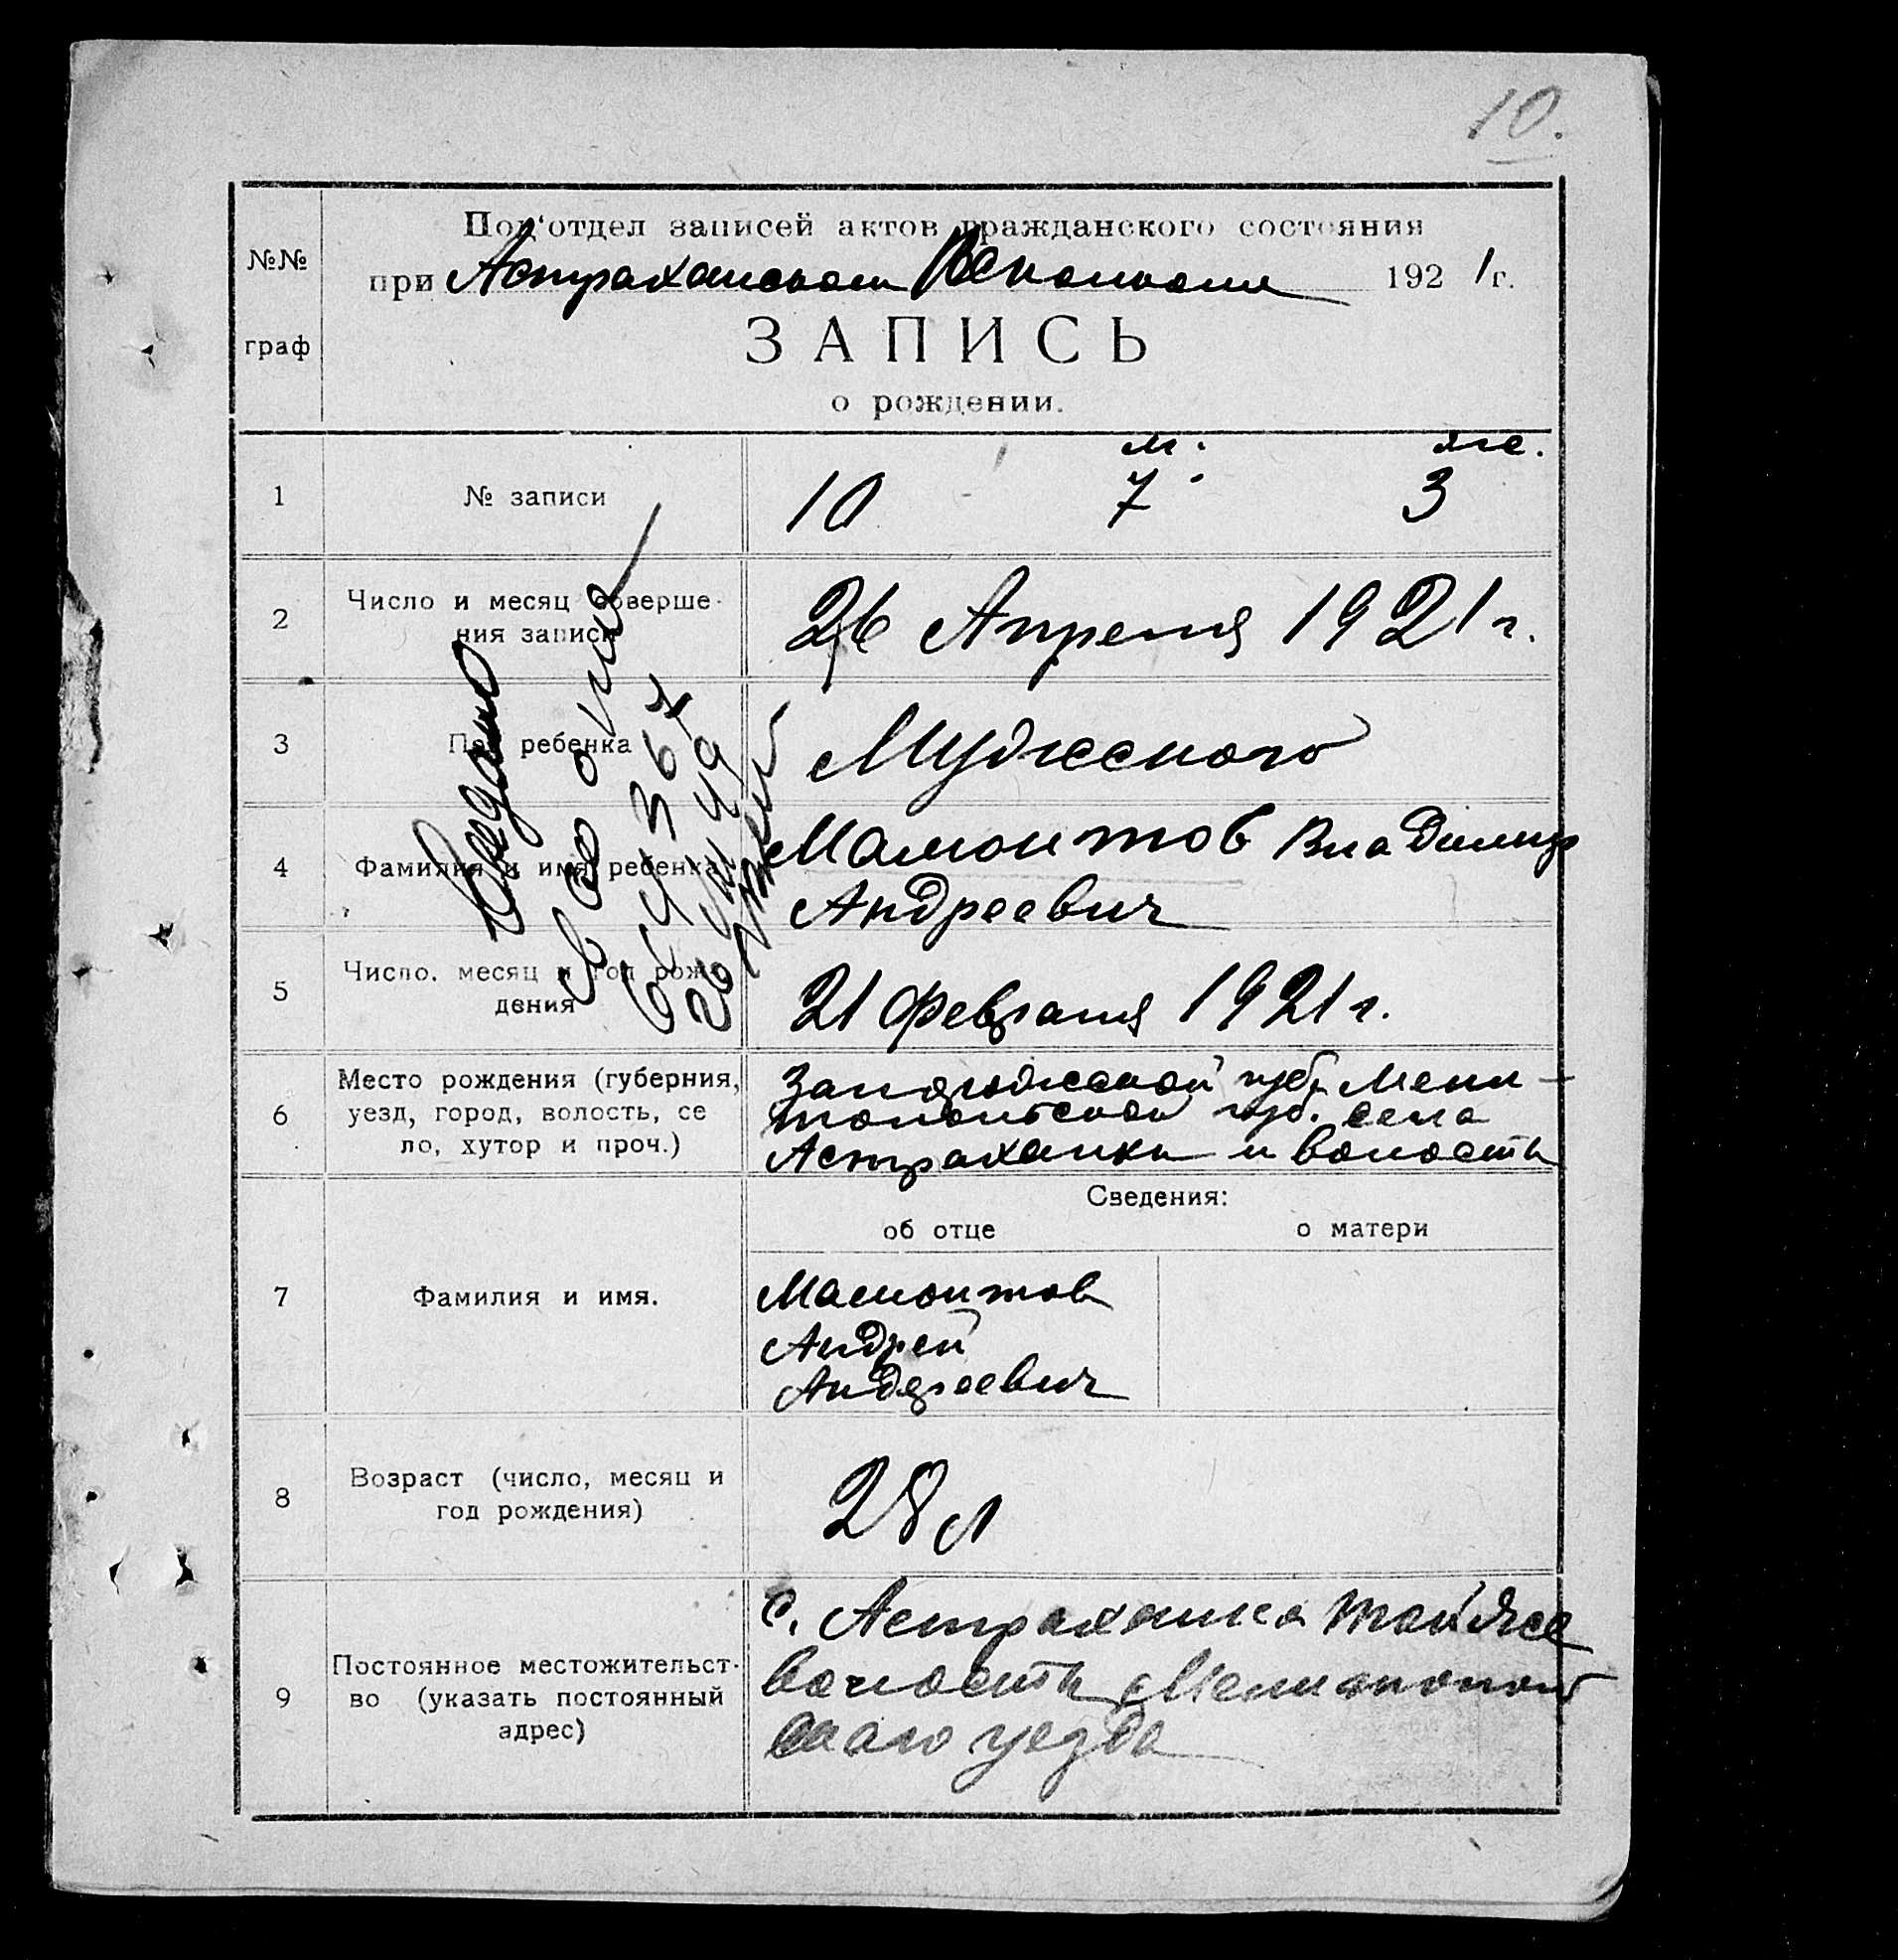 10.
Под‘отдел записей актов гражданского состояния
№№
при Астраханском Волисполкоме 1921 г.
граф
ЗАПИСЬ
о рождении.
м. же.
1 № записи 10 7 3
2 Число и месяц соверше-
ния записи 26 Апреля 1921 г.
3 Пол ребенка Мужеского
4 Фамилия и имя ребенка Мамонтов Владимир
Андреевич
5 Число. месяц и год рож-
дения 21 Февраля 1921 г.
Выдано
6 Место рождения (губерния,
уезд, город, волость, се
ло, хутор и проч.)
Запорожской губ. Мели-
топольской губ. села
Астраханки и волости
Сведения:
об отце о матери
7 Фамилия и имя. Мамонтов
Андрей
Андреевич
8 Возраст (число, месяц и
год рождения) 28 л
9 Постоянное местожительст-
во (указать постоянный
адрес)
с. Астраханка той же
волости Мелитополь
скаго уезда